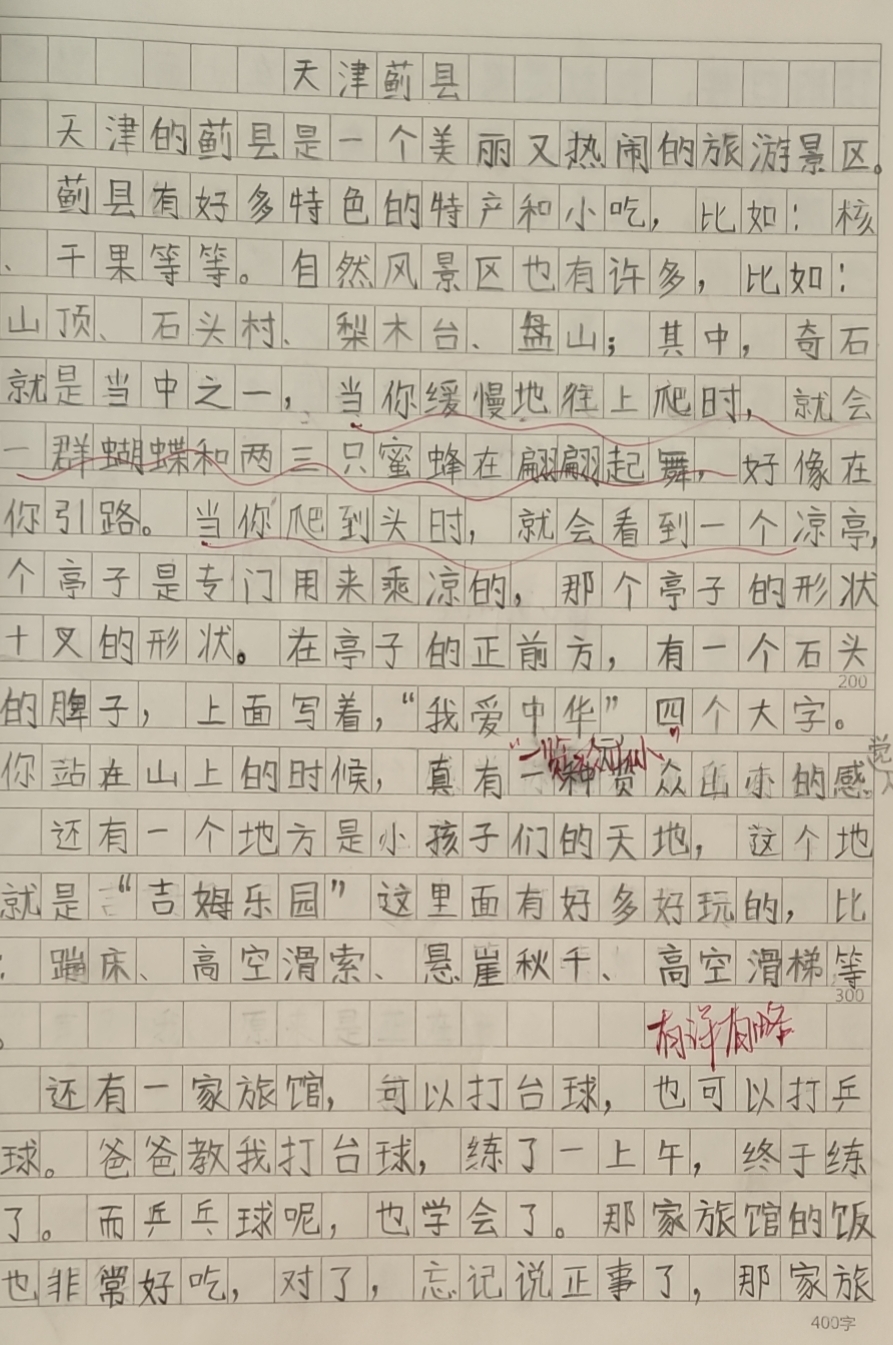 天津蓟县
天津的蓟县是一个美丽又热闹的旅游景区。
蓟县有好多特色的特产和小吃，比如：核
、干果等等。自然风景区也有许多，比如：
山顶、石头村、梨木台、盘山；其中，奇石
就是当中之一，当你缓慢地往上爬时，就会
一群蝴蝶和两三只蜜蜂在翩翩起舞，好像在
你引路。当你爬到头时，就会看到一个凉亭，
个亭子是专门用来乘凉的，那个亭子的形状
十叉的形状。在亭子的正前方，有一个石头
200
的脾子，上面写着，“我爱中华”四个大字。
你站在山上的时候，真有一种览众山小的感觉
还有一个地方是小孩子们的天地，这个地
就是“吉姆乐园”这里面有好多好玩的，比
：蹦床、高空滑索、悬崖秋千、高空滑梯等
300
。
有详有略
还有一家旅馆，可以打台球，也可以打乒
球。爸爸教我打台球，练了一上午，终于练
了。而乒乓球呢，也学会了。那家旅馆的饭
也非常好吃，对了，忘记说正事了，那家旅
400字